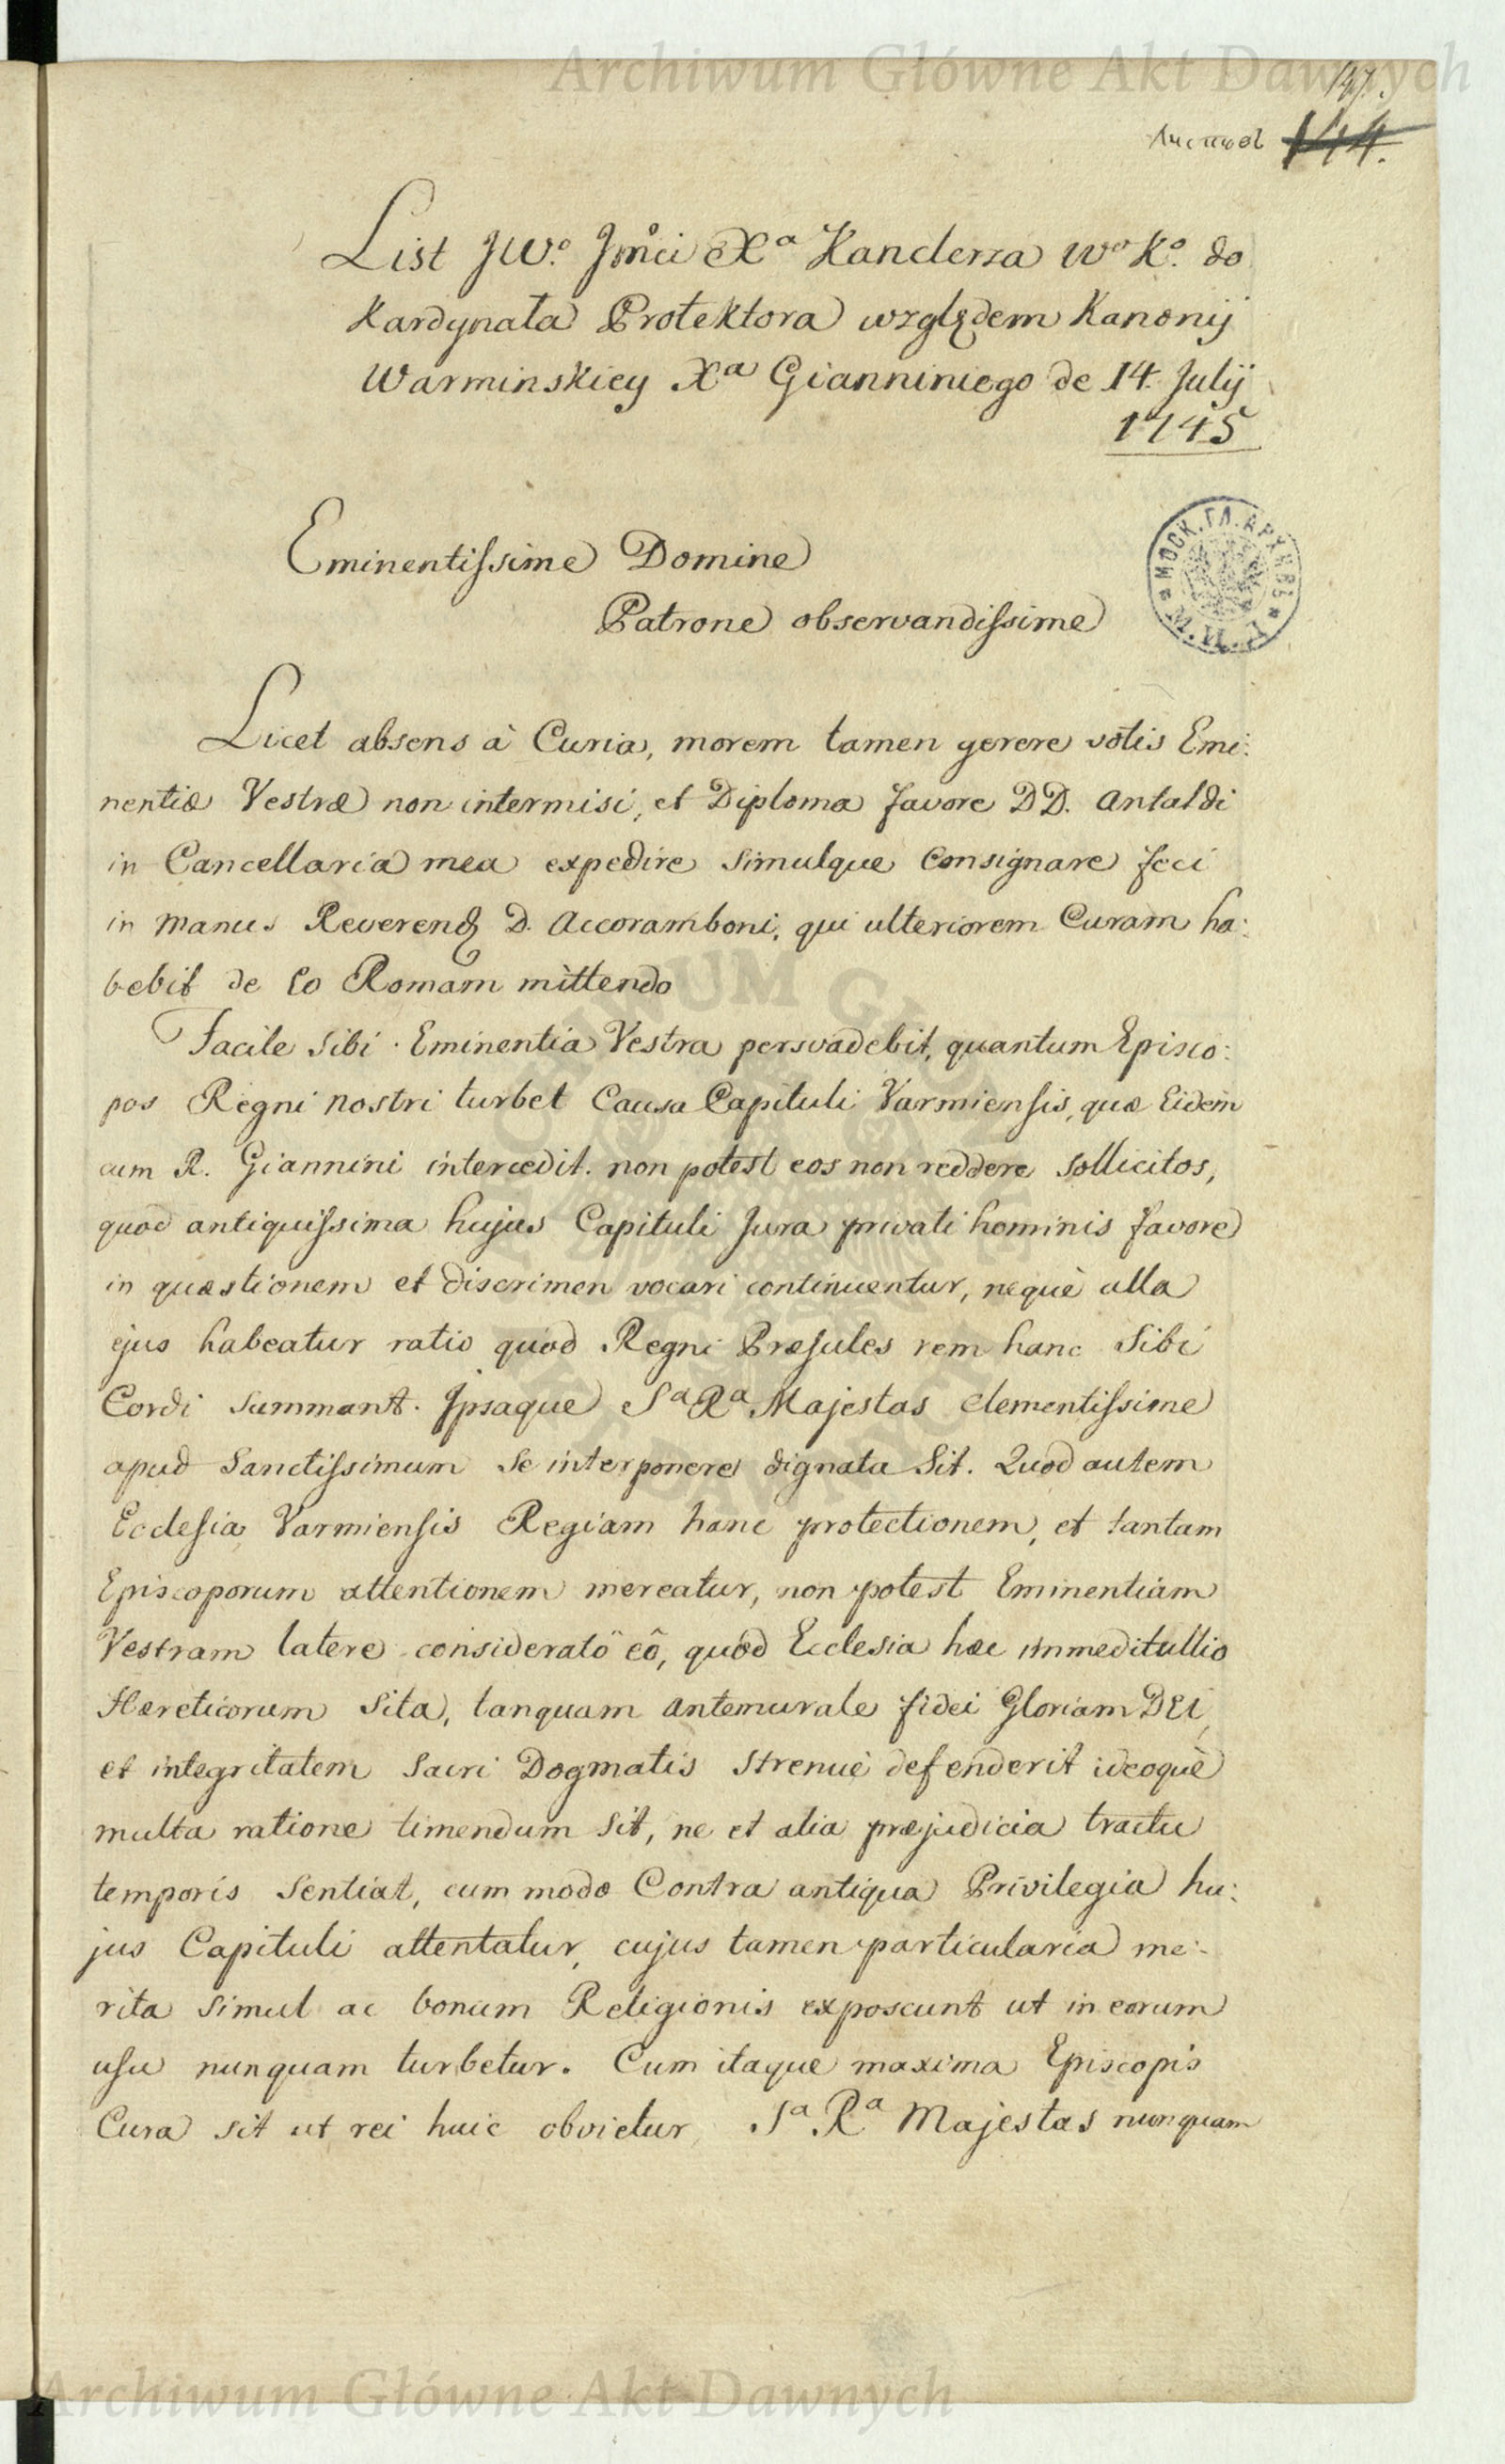 Archiwum Główne Akt Dawnych
147.
Листовъ 144.
List JW.º Jmći Xª Kanclerza Wº Kº. do
Kardynała Protektora względem Kanonij
Warminskiey Xª Gianniniego de 14. Julij
1745
Eminentissime Domine
Patrone observandissime
МОСК. ГЛ. АРХИВЪ * М. И. Д. *
Licet absens à Curia, morem tamen gerere votis Emi:
nentiæ Vestræ non intermisi, et Diploma favore DD. Antaldi
in Cancellaria mea expedire simulque Consignare feci
in Manus Reverend D. Accoramboni, qui ulteriorem Curam ha:
bebit de Eo Romam mittendo
Facile Sibi Eminentia Vestra persvadebit, quantum Episco:
pos Regni nostri turbet Causa Capituli Varmiensis, quæ Eidem
cum R. Giannini intercedit. non potest eos non reddere Sollicitos,
quod antiquissima hujus Capituli Jura privati hominis favore
in quæstionem et discrimen vocari continuentur, nequè ulla
ejus habeatur ratio quòd Regni Præsules rem hanc Sibi
Cordi Summant. Jpsaque Sª Rª Majestas Clementissime
apud Sanctissimum Se interponere dignata Sit. Quod autem
Ecclesia Varmiensis Regiam hanc protectionem, et tantam
Episcoporum attentionem mereatur, non potest Eminentiam
Vestram latere considerato eô, quòd Ecclesia hæc immeditullio
Hæreticorum Sita, tanquam Antemurale fidei Gloriam DEI,
et integritatem Sacri Dogmatis Strenuè defenderit ideoquè
multa ratione timendum Sit, ne et alia præjudicia tractu
temporis Sentiat, cum modo Contra antiqua Privilegia hu:
jus Capituli attentatur, cujus tamen particularia me:
rita Simul ac bonum Religionis exposcunt ut in eorum
usu nunquam turbetur. Cum itaque maxima Episcopis
Cura sit ut rei huic obvietur, Sª Rª Majestas nunquam
Archiwum Główne Akt Dawnych